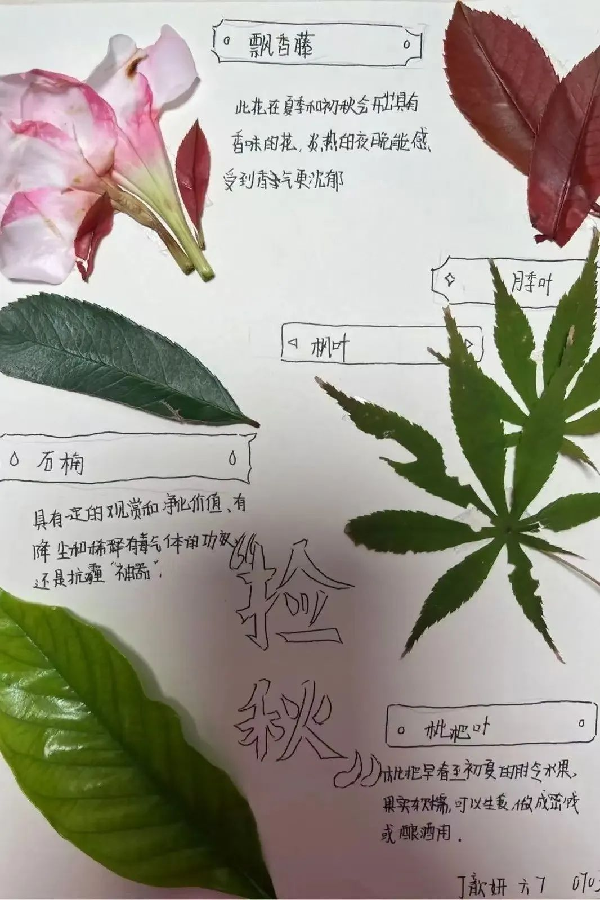 飘香藤
此花在夏季和初秋会开出具有
香味的花，炎热的夜晚能感
受到香气更沉郁
月季叶
枫叶
石楠
具有一定的观赏和净化价值、有
降尘和稀释有毒气体的功效
还是抗霾“神器”.
“捡
秋”
枇杷叶
枇杷早春至初夏的时令水果,
果实软糯,可以生食、做成蜜饯
或酿酒用.
丁歆妍